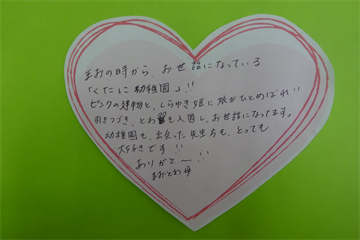 まおの時から、お世話になっている
「くたみこ幼稚園」!!
ピンクの建物と、しらゆき姫に娘がひとめぼれ!!
引きつづき、とわも入園し、お世話になってます。
幼稚園も、出会った先生方も、とっても
大好きです!!
ありがと〜!!
まおとわ母